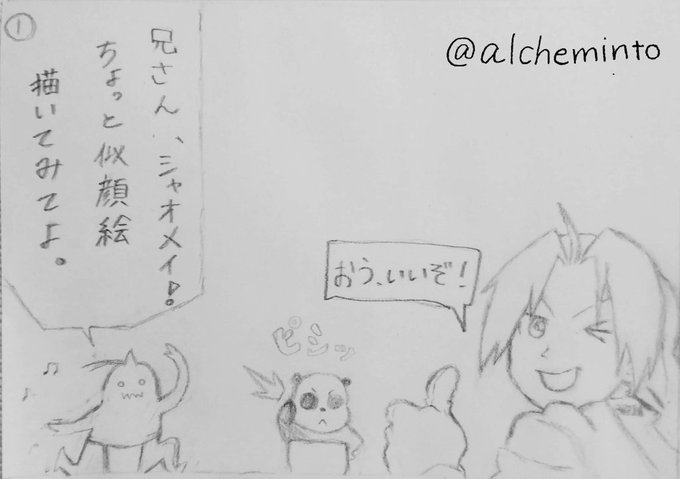 ①
@alcheminto
兄さん、シャオメイ!
ちょっと似顔絵
描いてみてよ。
おう、いいぞ!
ピシッ